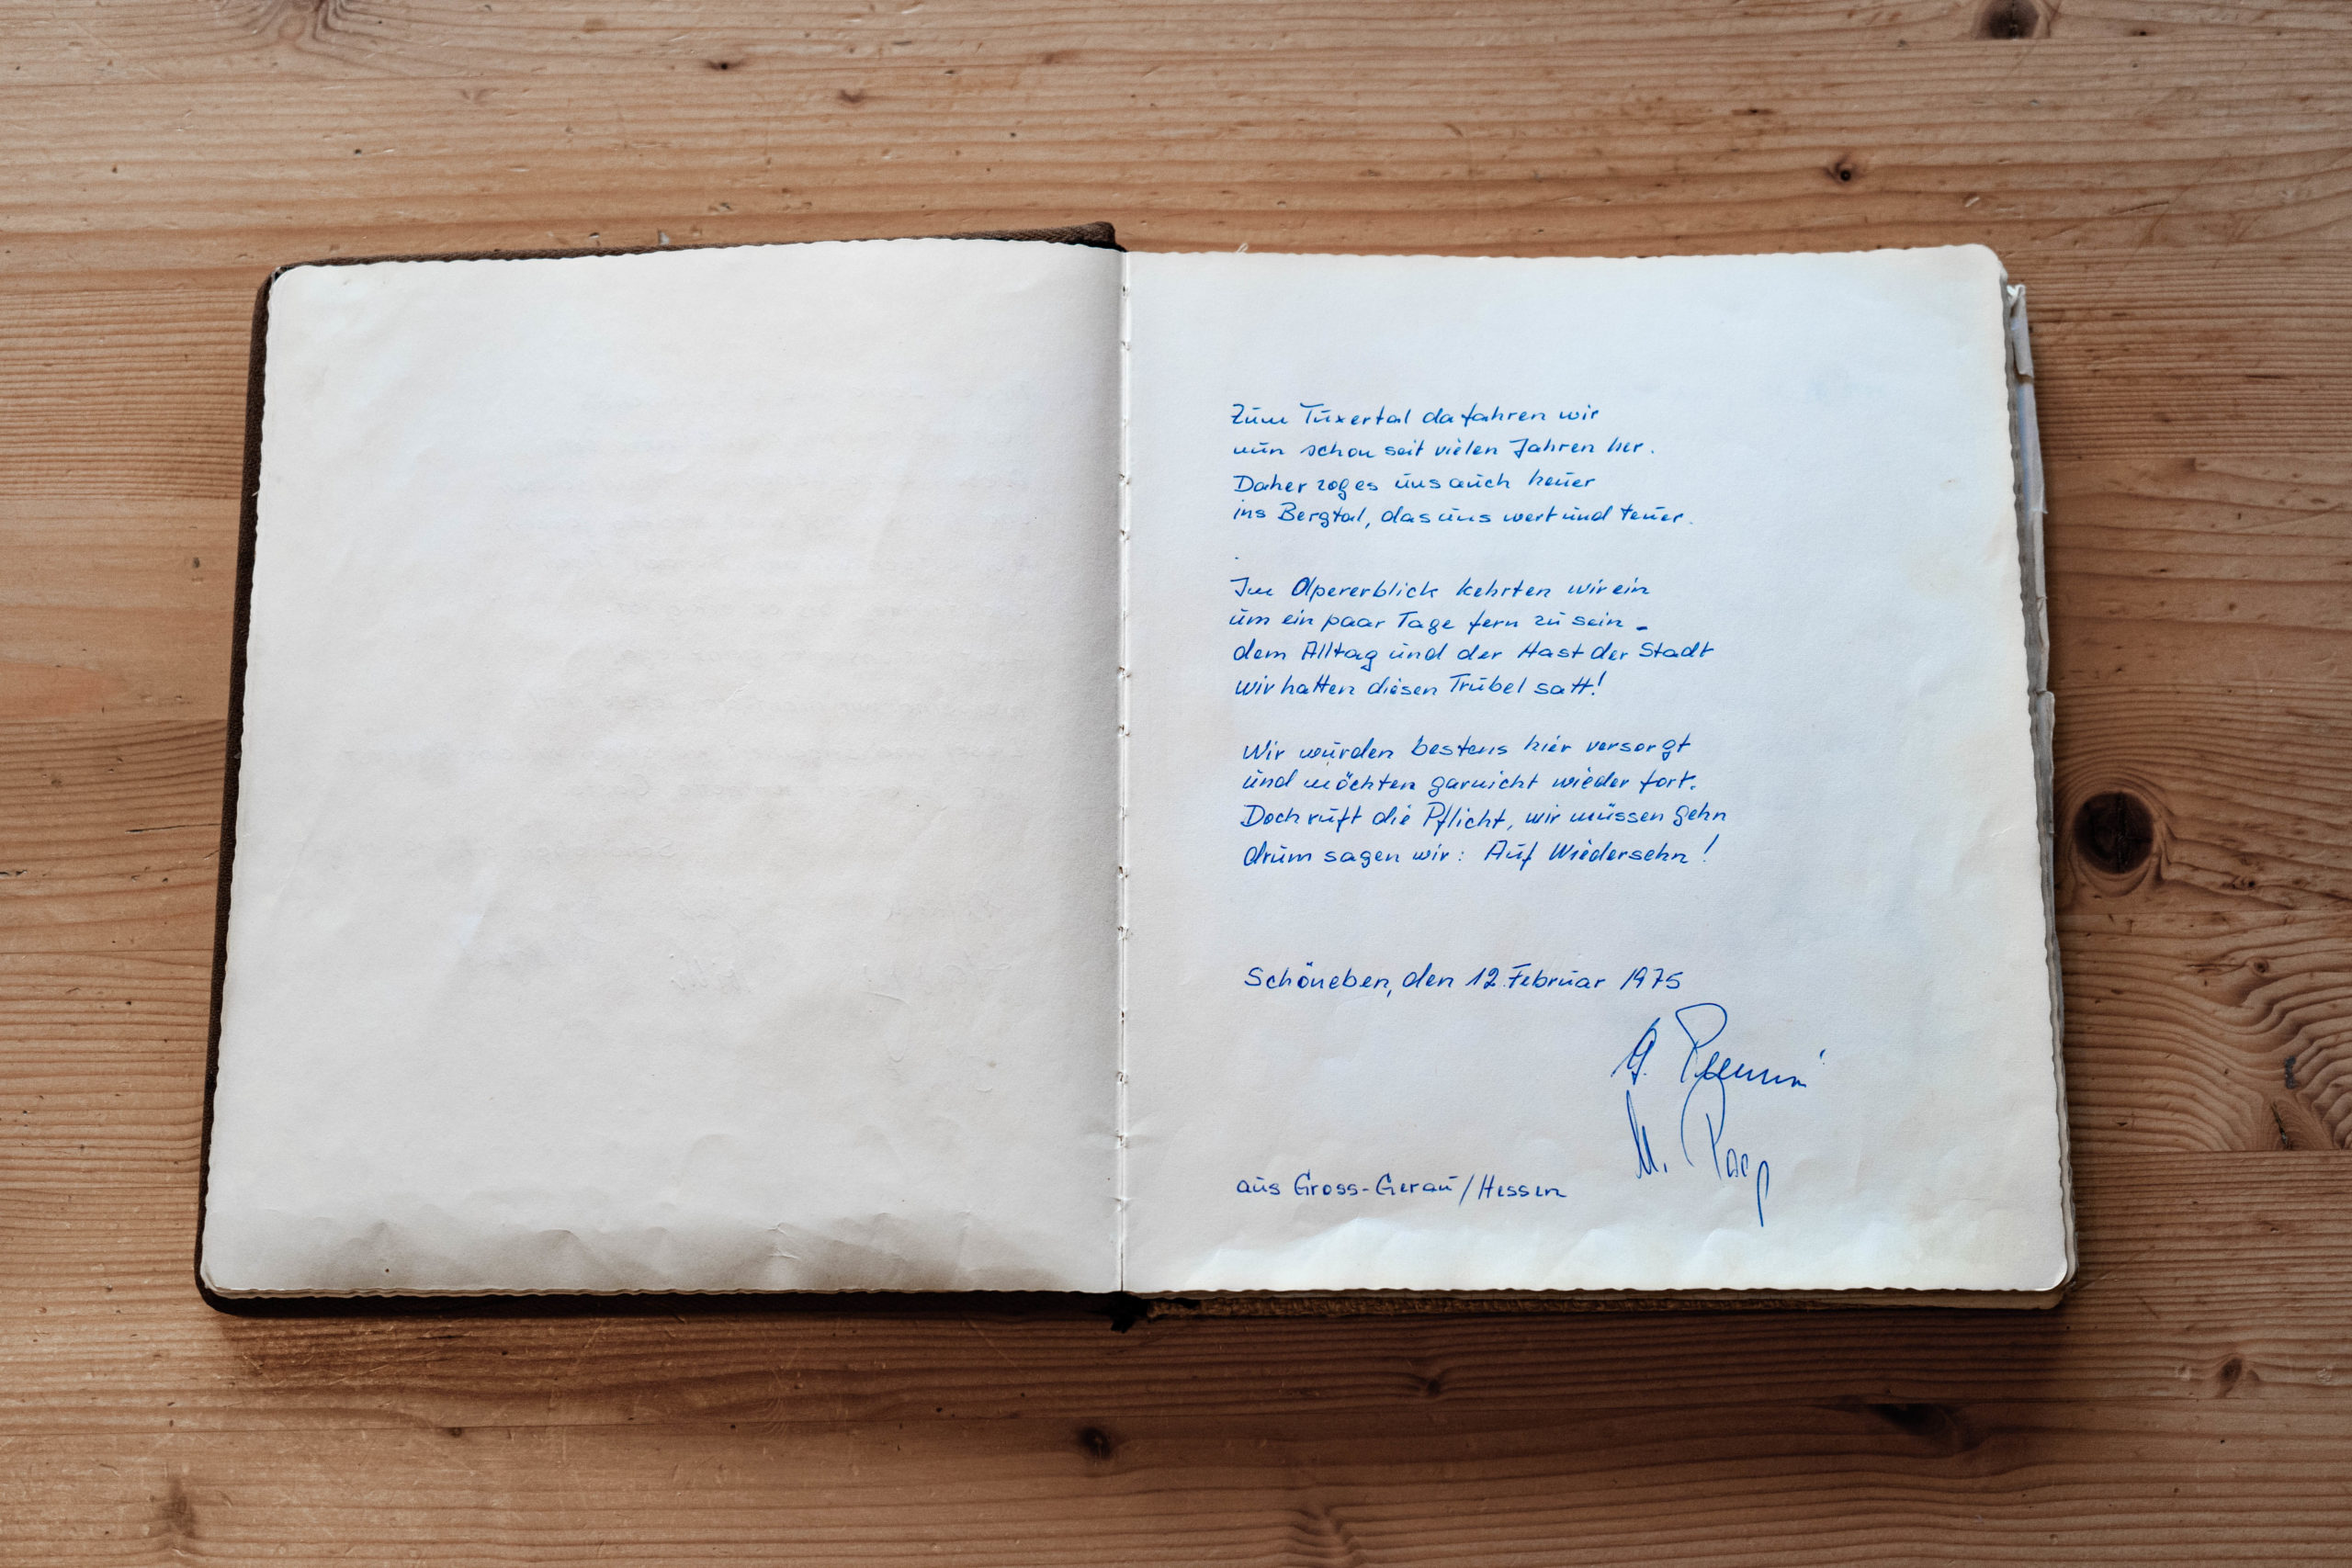 Zum Tuxertal da fahren wir
nun schon seit vielen Jahren her.
Daher zog es uns auch heuer
ins Bergtal, das uns wert und teuer.
Im Olpererblick kehrten wir ein
um ein paar Tage fern zu sein -
dem Alltag und der Hast der Stadt
wir hatten diesen Trubel satt!
Wir wurden bestens hier versorgt
und möchten garnicht wieder fort.
Doch ruft die Pflicht, wir müssen gehn
drum sagen wir: Auf Wiedersehn!
Schöneben, den 12. Februar 1975
M.
aus Gross-Gerau/Hessen